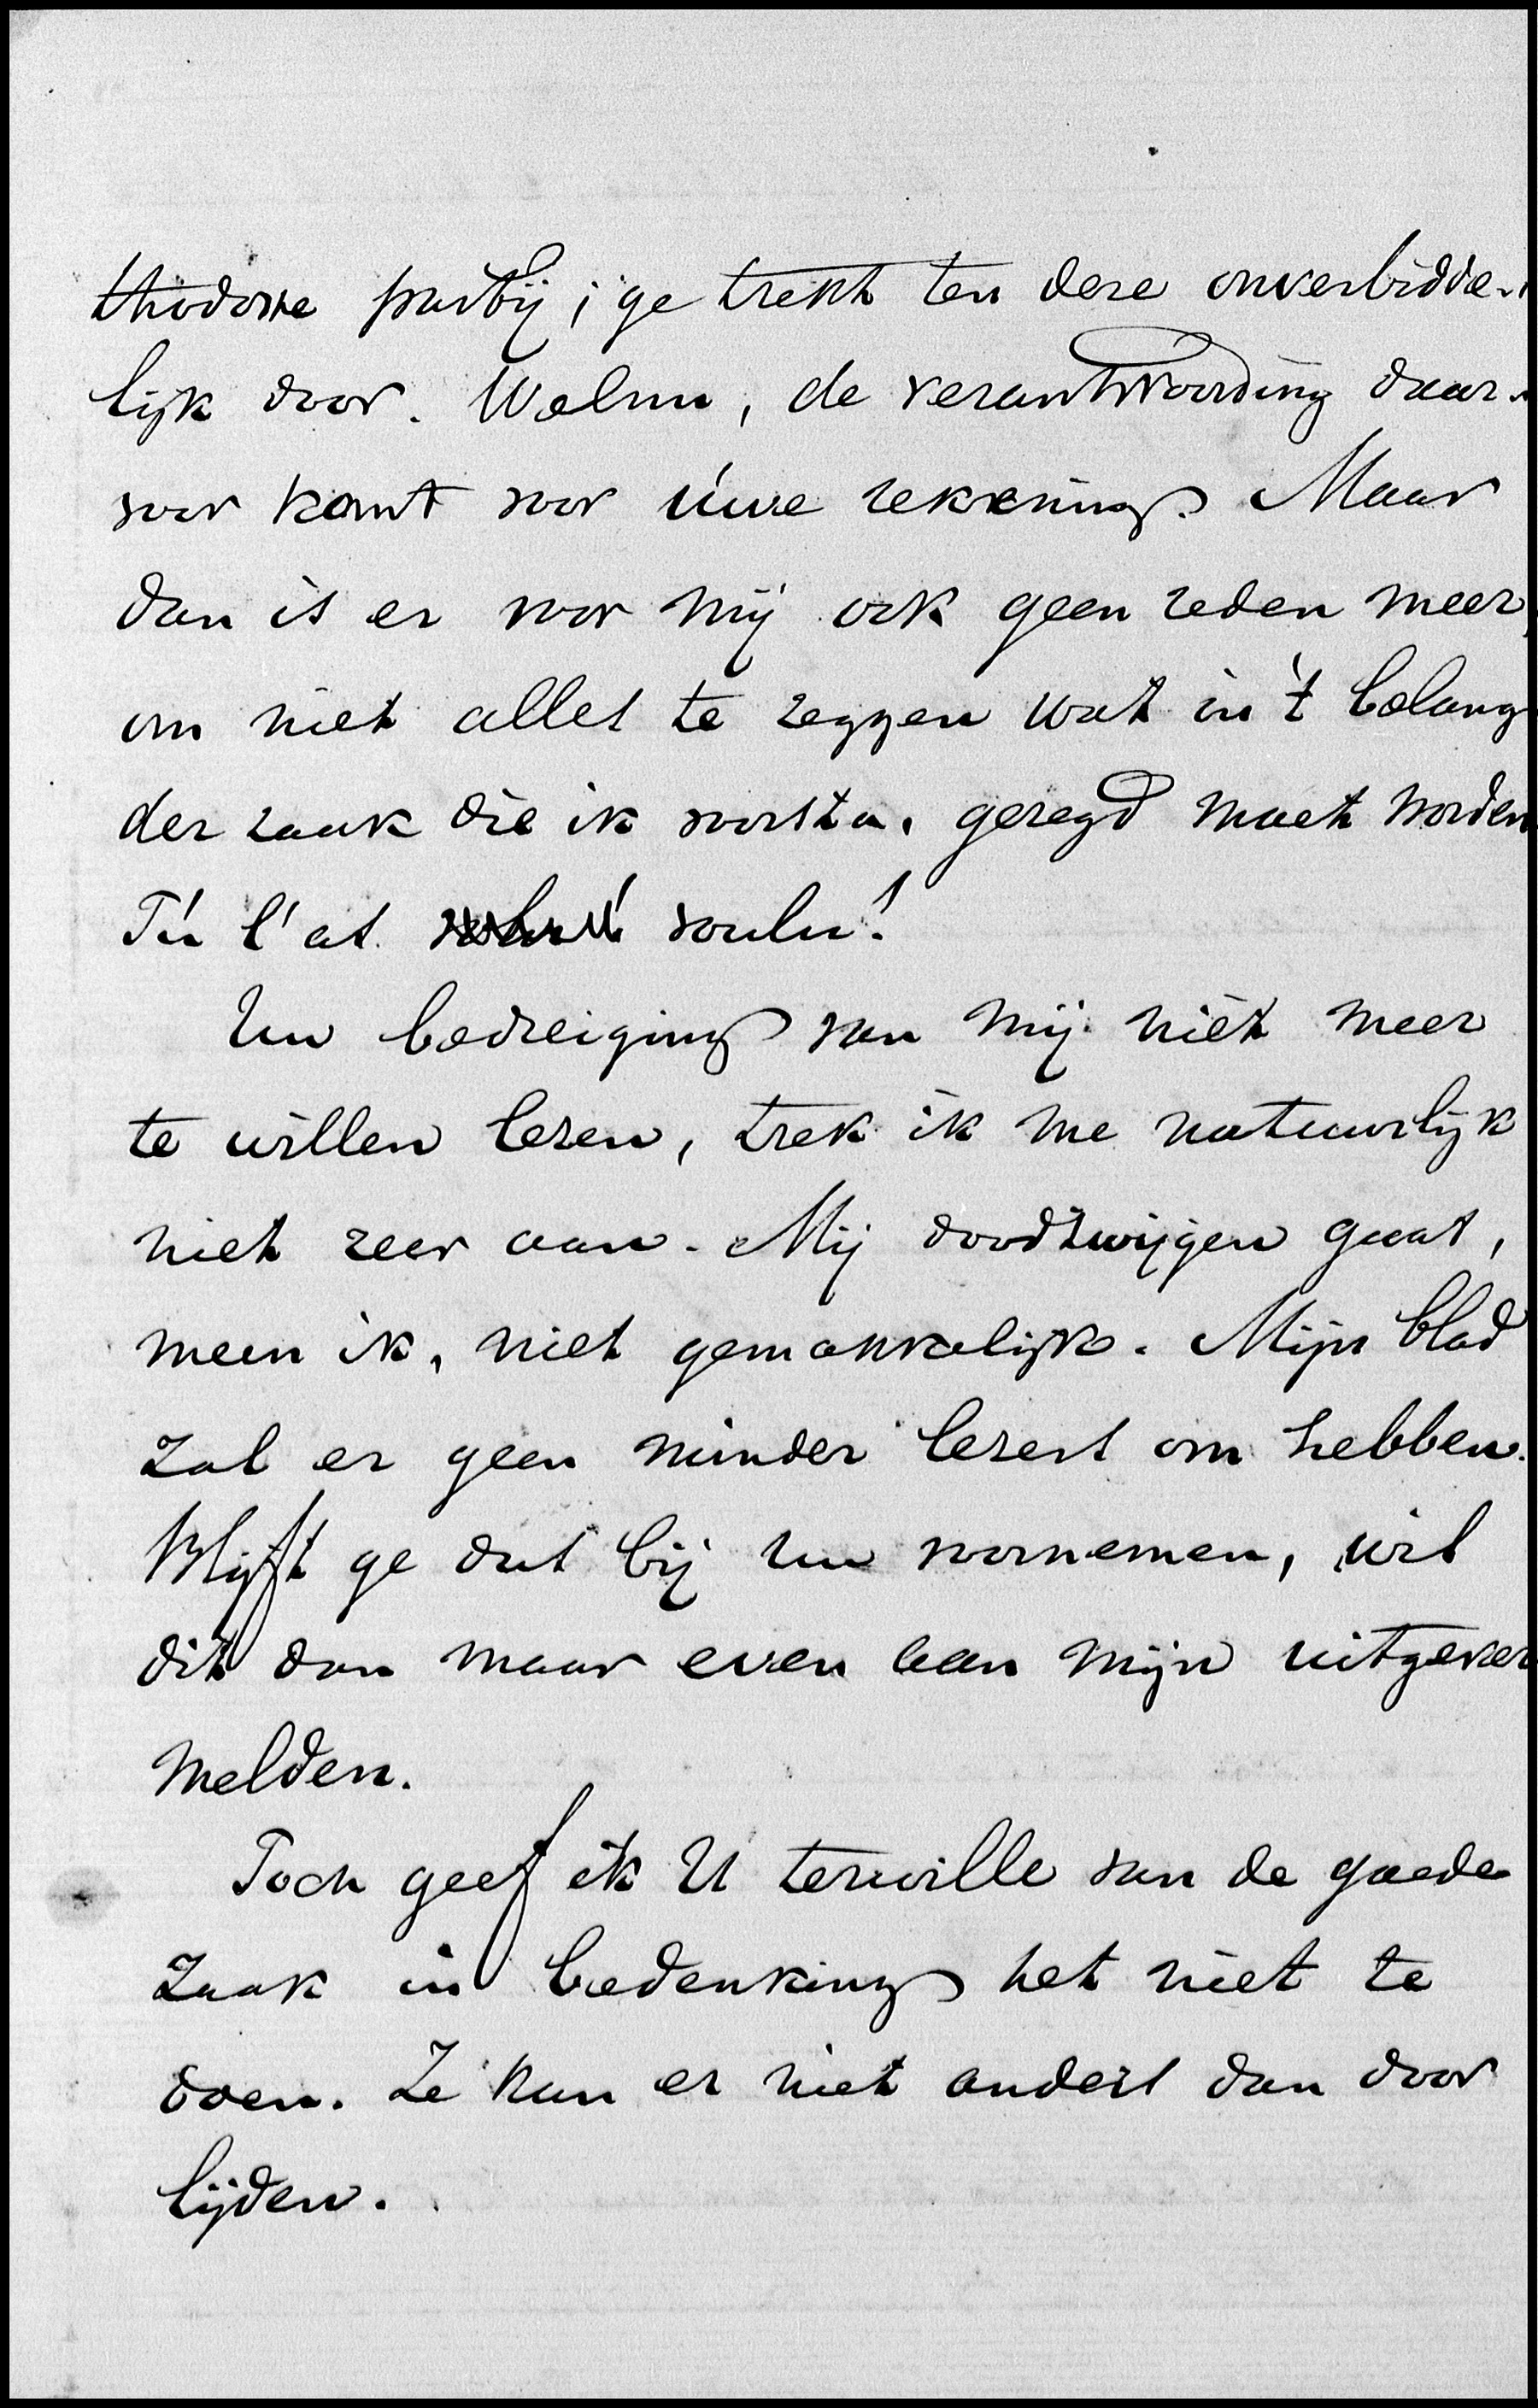 thodoxe partij; ge trekt ten deze onverbidde-
lijk door. Welnu, de verantwoording daar-
voor komt voor úwe rekening. Maar
dan is er voor mij ook geen reden meer,
om niet alles te zeggen wat in 't belang
der zaak die ik voorsta, gezegd moet worden
Tú l'as voulu!
Uw bedreiging van mij niet meer
te willen lezen, trek ik me natuurlijk
niet zeer aan. Mij doodzwijgen gaat,
meen ik, niet gemakkelijk. Mijn blad
zal er geen minder lezers om hebben.
Blijft ge dus bij uw voornemen, wil
dit dan maar even aan mijn uitgever
melden.
Toch geef ik U terwille van de goede
zaak in bedenking het niet te
doen. Ze kan er niet anders dan door
lijden.